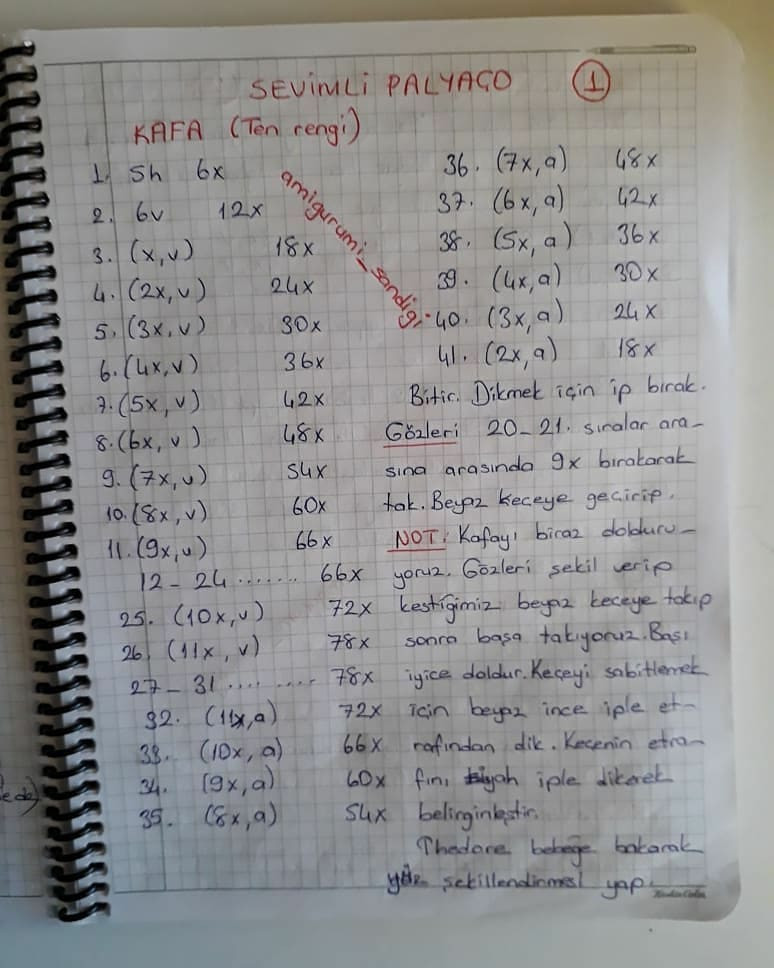 SEVİMLİ PALYAÇO 1
KAFA (Ten rengi)
1. Sh 6x
2. 6v 12x
3. (x,v) 18x
4. (2x,v) 24x
5. (3x,v) 30x
6. (4x,v) 36x
7. (5x,v) 42x
8. (6x,v) 48x
9. (7x,v) 54x
10. (8x,v) 60x
11. (9x,v) 66x
12-24 ....... 66x
25. (10x,v) 72x
26. (11x,v) 78x
27-31 .... ..... 78x
32. (11x,a) 72x
33. (10x,a) 66x
34. (9x,a) 60x
35. (8x,a) 54x
amigurumi_sandigi
36. (7x,a) 48x
37. (6x,a) 42x
38. (5x,a) 36x
39. (4x,a) 30x
40. (3x,a) 24x
41. (2x,a) 18x
Bitir. Dikmek için ip bırak.
Gözleri 20-21. sıralar ara-
sına arasında 9x bırakarak
tak. Beyaz keçeye geçirip.
NOT: Kafayı biraz dolduru-
yoruz. Gözleri şekil verip
kestiğimiz beyaz keçeye takıp
sonra başa takıyoruz. Başı
iyice doldur. Keçeyi sabitlemek
için beyaz ince iple et-
rafından dik. Keçenin etra-
fını siyah iple dikerek
belirginleştir.
Thedore bebeğe bakarak
yüz şekillendirmesi yap.